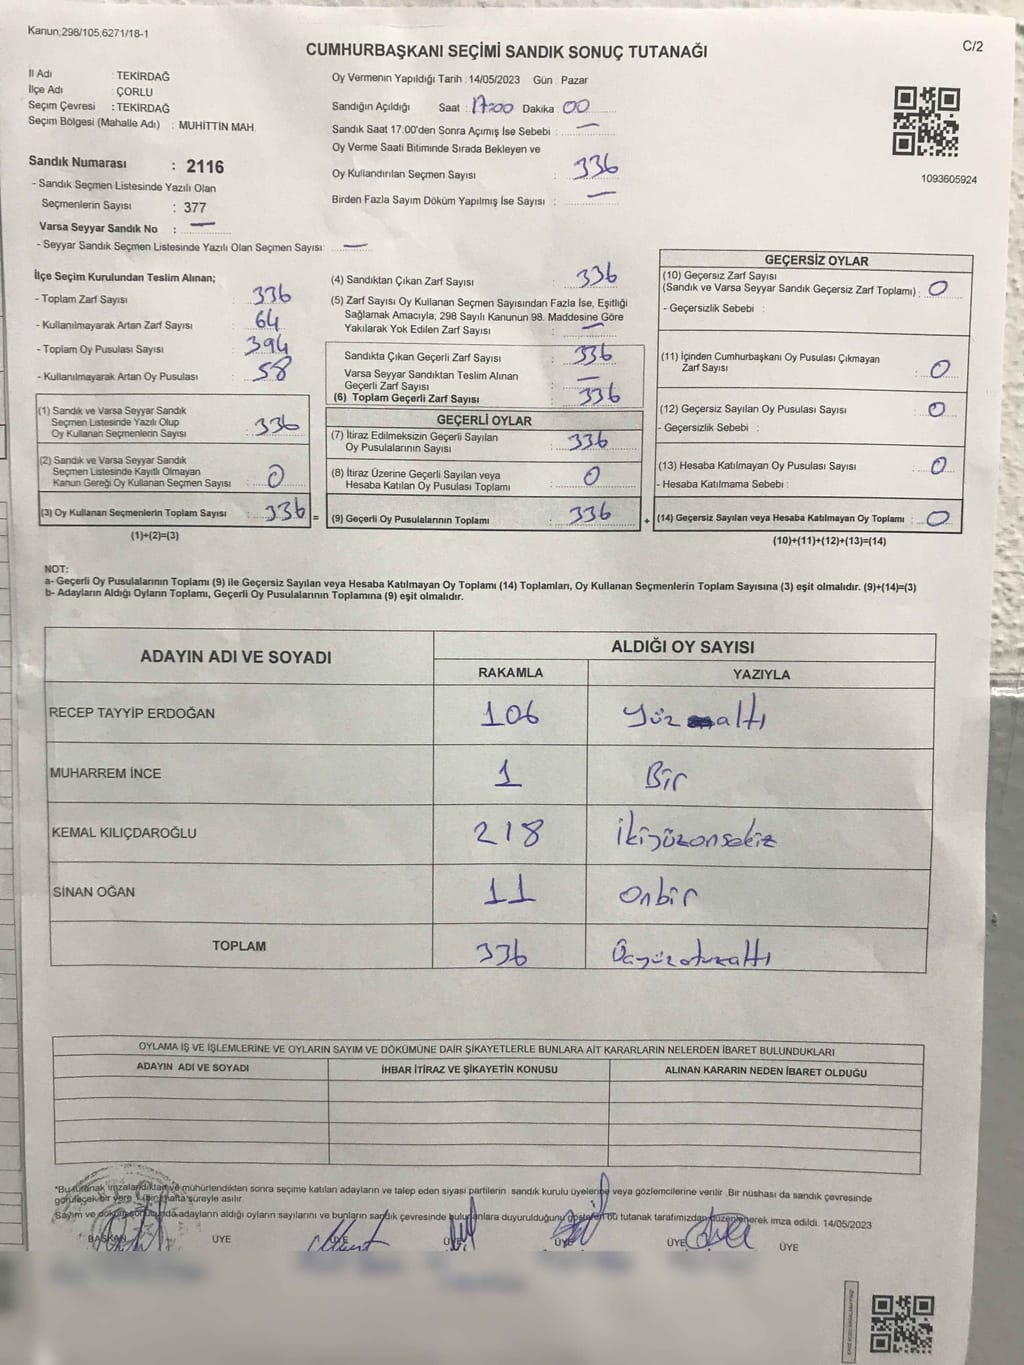 Kanun,298/105,6271/18-1
C/2
CUMHURBAŞKANI SEÇİMİ SANDIK SONUÇ TUTANAĞI
İl Adı : TEKİRDAĞ
İlçe Adı : ÇORLU
Seçim Çevresi : TEKİRDAĞ
Seçim Bölgesi (Mahalle Adı) : MUHİTTİN MAH.
Sandık Numarası : 2116
- Sandık Seçmen Listesinde Yazılı Olan
Seçmenlerin Sayısı : 377
Varsa Seyyar Sandık No : —
- Seyyar Sandık Seçmen Listesinde Yazılı Olan Seçmen Sayısı: —
Oy Vermenin Yapıldığı Tarih :14/05/2023 Gün : Pazar
Sandığın Açıldığı Saat : 17:00 Dakika : 00
Sandık Saat 17:00'den Sonra Açımış İse Sebebi : —
Oy Verme Saati Bitiminde Sırada Bekleyen ve
Oy Kullandırılan Seçmen Sayısı : 336
Birden Fazla Sayım Döküm Yapılmış İse Sayısı : —
1093605924
İlçe Seçim Kurulundan Teslim Alınan;
- Toplam Zarf Sayısı : 336
- Kullanılmayarak Artan Zarf Sayısı : 64
- Toplam Oy Pusulası Sayısı : 394
- Kullanılmayarak Artan Oy Pusulası : 58
(1) Sandık ve Varsa Seyyar Sandık
Seçmen Listesinde Yazılı Olup
Oy Kullanan Seçmenlerin Sayısı : 336
(2) Sandık ve Varsa Seyyar Sandık
Seçmen Listesinde Kayıtlı Olmayan
Kanun Gereği Oy Kullanan Seçmen Sayısı : 0
(3) Oy Kullanan Seçmenlerin Toplam Sayısı : 336 =
(1)+(2)=(3)
(4) Sandıktan Çıkan Zarf Sayısı : 336
(5) Zarf Sayısı Oy Kullanan Seçmen Sayısından Fazla İse, Eşitliği
Sağlamak Amacıyla; 298 Sayılı Kanunun 98. Maddesine Göre
Yakılarak Yok Edilen Zarf Sayısı : —
Sandıkta Çıkan Geçerli Zarf Sayısı : 336
Varsa Seyyar Sandıktan Teslim Alınan
Geçerli Zarf Sayısı : —
(6) Toplam Geçerli Zarf Sayısı : 336
GEÇERLİ OYLAR
(7) İtiraz Edilmeksizin Geçerli Sayılan
Oy Pusulalarının Sayısı : 336
(8) İtiraz Üzerine Geçerli Sayılan veya
Hesaba Katılan Oy Pusulası Toplamı : 0
(9) Geçerli Oy Pusulalarının Toplamı : 336 +
GEÇERSİZ OYLAR
(10) Geçersız Zarf Sayısı
(Sandık ve Varsa Seyyar Sandık Geçersiz Zarf Toplamı) : 0
- Geçersizlik Sebebi :
(11) İçinden Cumhurbaşkanı Oy Pusulası Çıkmayan
Zarf Sayısı : 0
(12) Geçersiz Sayılan Oy Pusulası Sayısı : 0
- Geçersizlik Sebebi :
(13) Hesaba Katılmayan Oy Pusulası Sayısı : 0
- Hesaba Katılmama Sebebi :
(14) Geçersiz Sayılan veya Hesaba Katılmayan Oy Toplamı : 0
(10)+(11)+(12)+(13)=(14)
NOT:
a- Geçerli Oy Pusulalarının Toplamı (9) ile Geçersiz Sayılan veya Hesaba Katılmayan Oy Toplamı (14) Toplamları, Oy Kullanan Seçmenlerin Toplam Sayısına (3) eşit olmalıdır. (9)+(14)=(3)
b- Adayların Aldığı Oyların Toplamı, Geçerli Oy Pusulalarının Toplamına (9) eşit olmalıdır.
ADAYIN ADI VE SOYADI ALDIĞI OY SAYISI
RAKAMLA YAZIYLA
RECEP TAYYİP ERDOĞAN 106 Yüz altı
MUHARREM İNCE 1 Bir
KEMAL KILIÇDAROĞLU 218 İkiyüzonsekiz
SİNAN OĞAN 11 Onbir
TOPLAM 336 Üçyüzotuzaltı
OYLAMA İŞ VE İŞLEMLERİNE VE OYLARIN SAYIM VE DÖKÜMÜNE DAİR ŞİKAYETLERLE BUNLARA AİT KARARLARIN NELERDEN İBARET BULUNDUKLARI
ADAYIN ADI VE SOYADI İHBAR İTİRAZ VE ŞİKAYETİN KONUSU ALINAN KARARIN NEDEN İBARET OLDUĞU
*Bu tutanak imzalandıktan ve mühürlendikten sonra seçime katılan adayların ve talep eden siyasi partilerin sandık kurulu üyelerine veya gözlemcilerine verilir .Bir nüshası da sandık çevresinde
görülecek bir yere 1 (bir) hafta süreyle asılır.
Sayım ve döküm sonucunda adayların aldığı oyların sayılarını ve bunların sandık çevresinde bulunanlara duyurulduğunu gösteren bu tutanak tarafımızdan düzenlenerek imza edildi. 14/05/2023
BAŞKAN ÜYE ÜYE ÜYE ÜYE ÜYE ÜYE